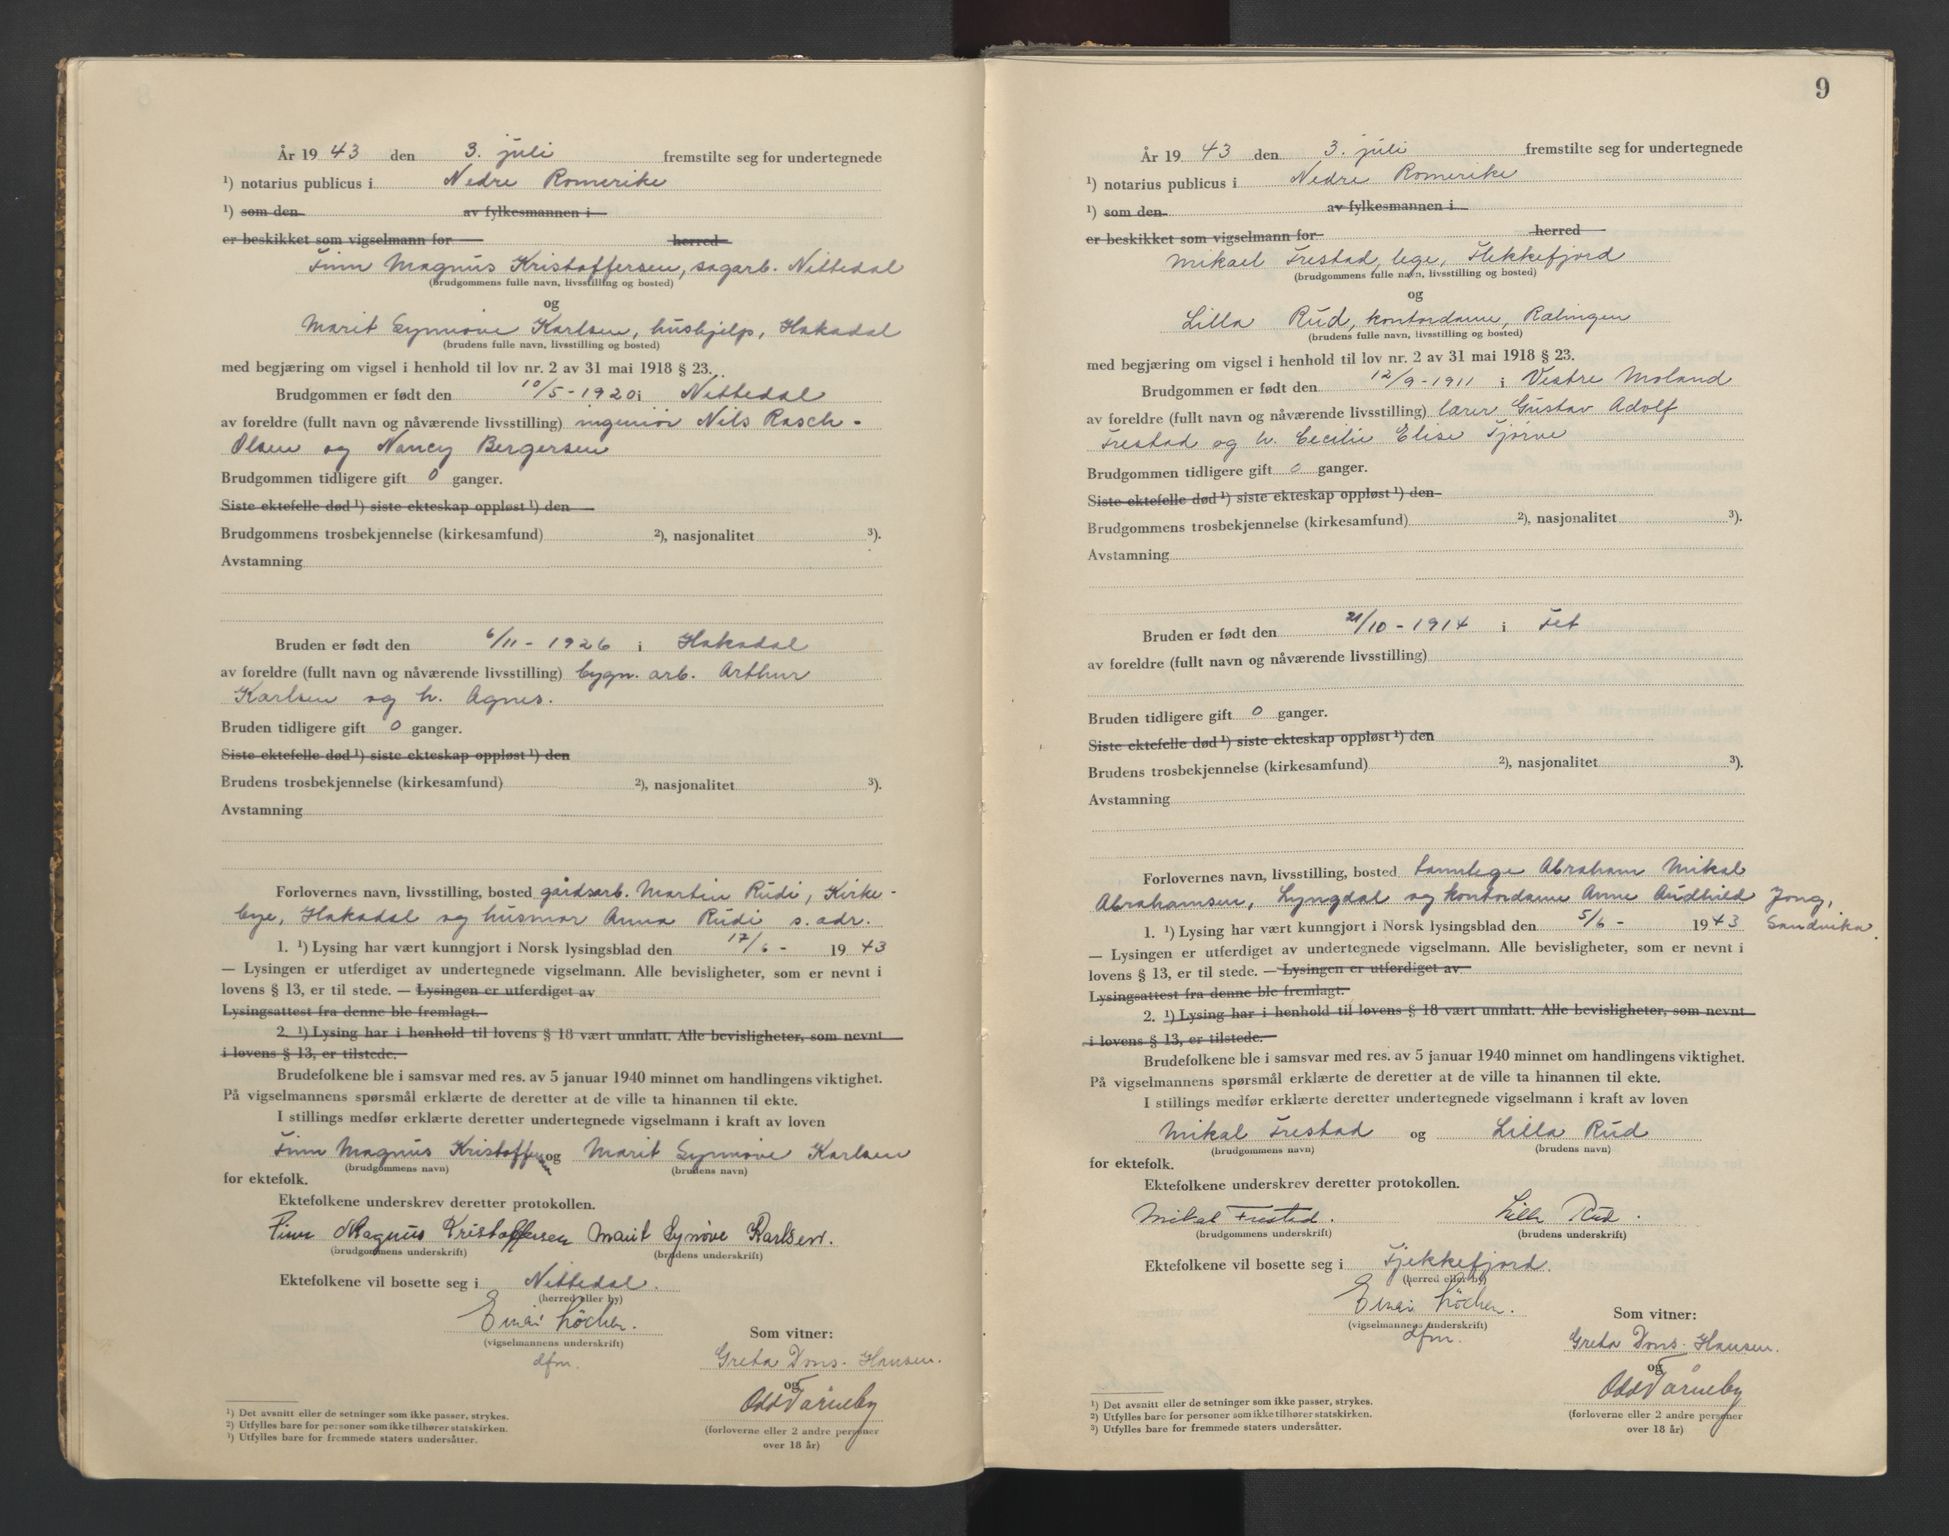 År 19 43 den 3. juli fremstilte seg for undertegnede
¹) notarius publicus i Nedre Romerike
¹) som den av fylkesmannen i
er beskikket som vigselmann for herred
Finn Magnus Kristoffersen, sagarb. Nittedal
(brudgommens fulle navn, livsstilling og bosted)
og
Marit Synnøve Karlsen, hushjelp, Hakadal
(brudens fulle navn, livsstilling og bosted)
med begjæring om vigsel i henhold til lov nr. 2 av 31 mai 1918 § 23.
Brudgommen er født den 10/5-1920 i Nittedal
av foreldre (fullt navn og nåværende livsstilling) ingeniør Nils Rasch-
Olsen og Nancy Bergersen
Brudgommen tidligere gift 0 ganger.
Siste ektefelle død ¹) siste ekteskap oppløst ¹) den
Brudgommens trosbekjennelse (kirkesamfund) ²), nasjonalitet ³).
Avstamning
Bruden er født den 6/11-1926 i Hakadal
av foreldre (fullt navn og nåværende livsstilling) bygn. arb. Arthur
Karlsen og h. Agnes.
Bruden tidligere gift 0 ganger.
Siste ektefelle død ¹) siste ekteskap oppløst ¹) den
Brudens trosbekjennelse (kirkesamfund) ²), nasjonalitet ³).
Avstamning
Forlovernes navn, livsstilling, bosted gårdsarb. Martin Rudi, Kirke-
bye, Hakadal og husmor Anna Rudi s. adr.
1. ¹) Lysing har vært kunngjort i Norsk lysingsblad den 17/6- 1943
— Lysingen er utferdiget av undertegnede vigselmann. Alle bevisligheter, som er nevnt i
lovens § 13, er til stede. — Lysingen er utferdiget av
Lysingsattest fra denne ble fremlagt.
2. ¹) Lysing har i henhold til lovens § 18 vært unnlatt. Alle bevisligheter, som nevnt
i lovens § 13, er tilstede.
Brudefolkene ble i samsvar med res. av 5 januar 1940 minnet om handlingens viktighet.
På vigselmannens spørsmål erklærte de deretter at de ville ta hinannen til ekte.
I stillings medfør erklærte deretter undertegnede vigselmann i kraft av loven
Finn Magnus Kristoffersen og Marit Synnøve Karlsen
(brudgommens navn) (brudens navn)
for ektefolk.
Ektefolkene underskrev deretter protokollen.
Finn Magnus Kristoffersen Marit Synøve Karlsen.
(brudgommens underskrift) (brudens underskrift)
Ektefolkene vil bosette seg i Nittedal.
(herred eller by)
Einar Løchen.
(vigselmannens underskrift)
dfm.
Som vitner:
Greta Dons-Hansen.
og
Odd Tårneby
(forloverne eller 2 andre personer
over 18 år)
¹) Det avsnitt eller de setninger som ikke passer, strykes.
²) Utfylles bare for personer som ikke tilhører statskirken.
³) Utfylles bare for fremmede staters undersåtter.
9
År 19 43 den 3. juli fremstilte seg for undertegnede
¹) notarius publicus i Nedre Romerike
¹) som den av fylkesmannen i
er beskikket som vigselmann for herred
Mikael Frestad, lege, Flekkefjord
(brudgommens fulle navn, livsstilling og bosted)
og
Lilla Rud, kontordame, Rælingen
(brudens fulle navn, livsstilling og bosted)
med begjæring om vigsel i henhold til lov nr. 2 av 31 mai 1918 § 23.
Brudgommen er født den 12/9-1911 i Vestre Moland
av foreldre (fullt navn og nåværende livsstilling) lærer Gustav Adolf
Frestad og h. Cecilie Elise Tjørve
Brudgommen tidligere gift 0 ganger.
Siste ektefelle død ¹) siste ekteskap oppløst ¹) den
Brudgommens trosbekjennelse (kirkesamfund) ²), nasjonalitet ³).
Avstamning
Bruden er født den 21/10-1914 i Fet
av foreldre (fullt navn og nåværende livsstilling)
Bruden tidligere gift 0 ganger.
Siste ektefelle død ¹) siste ekteskap oppløst ¹) den
Brudens trosbekjennelse (kirkesamfund) ²), nasjonalitet ³).
Avstamning
Forlovernes navn, livsstilling, bosted tannlege Abraham Mikal
Abrahamsen, Lyngdal og kontordame Anne Audhild Jong,
Sandvika.
1. ¹) Lysing har vært kunngjort i Norsk lysingsblad den 5/6- 1943
— Lysingen er utferdiget av undertegnede vigselmann. Alle bevisligheter, som er nevnt i
lovens § 13, er til stede. — Lysingen er utferdiget av
Lysingsattest fra denne ble fremlagt.
2. ¹) Lysing har i henhold til lovens § 18 vært unnlatt. Alle bevisligheter, som nevnt
i lovens § 13, er tilstede.
Brudefolkene ble i samsvar med res. av 5 januar 1940 minnet om handlingens viktighet.
På vigselmannens spørsmål erklærte de deretter at de ville ta hinannen til ekte.
I stillings medfør erklærte deretter undertegnede vigselmann i kraft av loven
Mikal Frestad og Lilla Rud
(brudgommens navn) (brudens navn)
for ektefolk.
Ektefolkene underskrev deretter protokollen.
Mikal Frestad. Lilla Rud.
(brudgommens underskrift) (brudens underskrift)
Ektefolkene vil bosette seg i Fjekkefjord.
(herred eller by)
Einar Løchen.
(vigselmannens underskrift)
dfm.
Som vitner:
Greta Dons-Hansen.
og
Odd Tårneby
(forloverne eller 2 andre personer
over 18 år)
¹) Det avsnitt eller de setninger som ikke passer, strykes.
²) Utfylles bare for personer som ikke tilhører statskirken.
³) Utfylles bare for fremmede staters undersåtter.